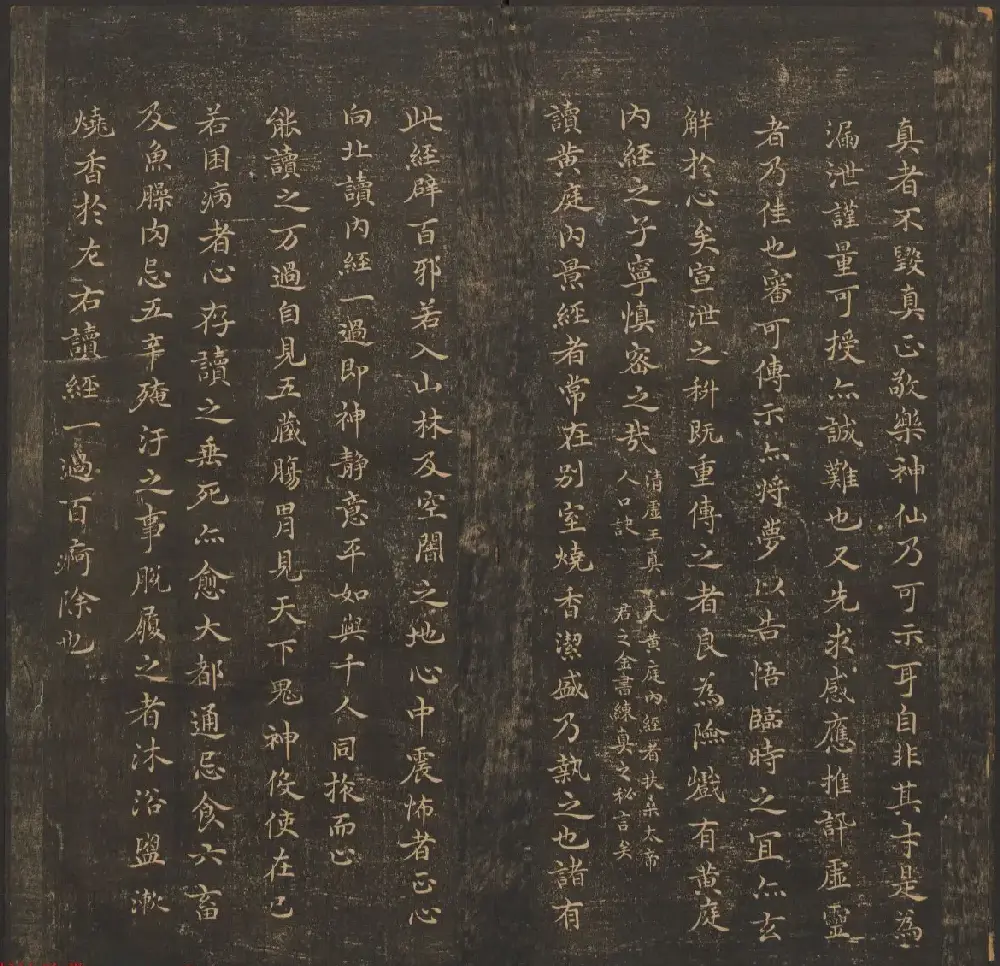 真者不毀真正敬樂神仙乃可示耳自非其才是為
漏泄謹量可授亦誠難也又先求感應推訝虛靈
者乃佳也審可傳示亦將夢以告悟臨時之宜亦玄
解於心矣宣泄之科既重傳之者良為險戲有黃庭
內經之子寧慎密之哉 清虛王真人口訣 夫黃庭內經者扶桑太帝君之金書練真之秘言矣
讀黃庭內景經者常在別室燒香潔盛乃執之也諸有
此經辟百邪若入山林及空闇之地心中震怖者正心
向北讀內經一過即神靜意平如與千人同掖而心
能讀之万過自見五藏腸胃見天下鬼神役使在己
若困病者心存讀之垂死亦愈大都通忌食六畜
及魚臊肉忌五辛殗汙之事脫履之者沐浴盥漱
燒香於左右讀經一過百痾除也